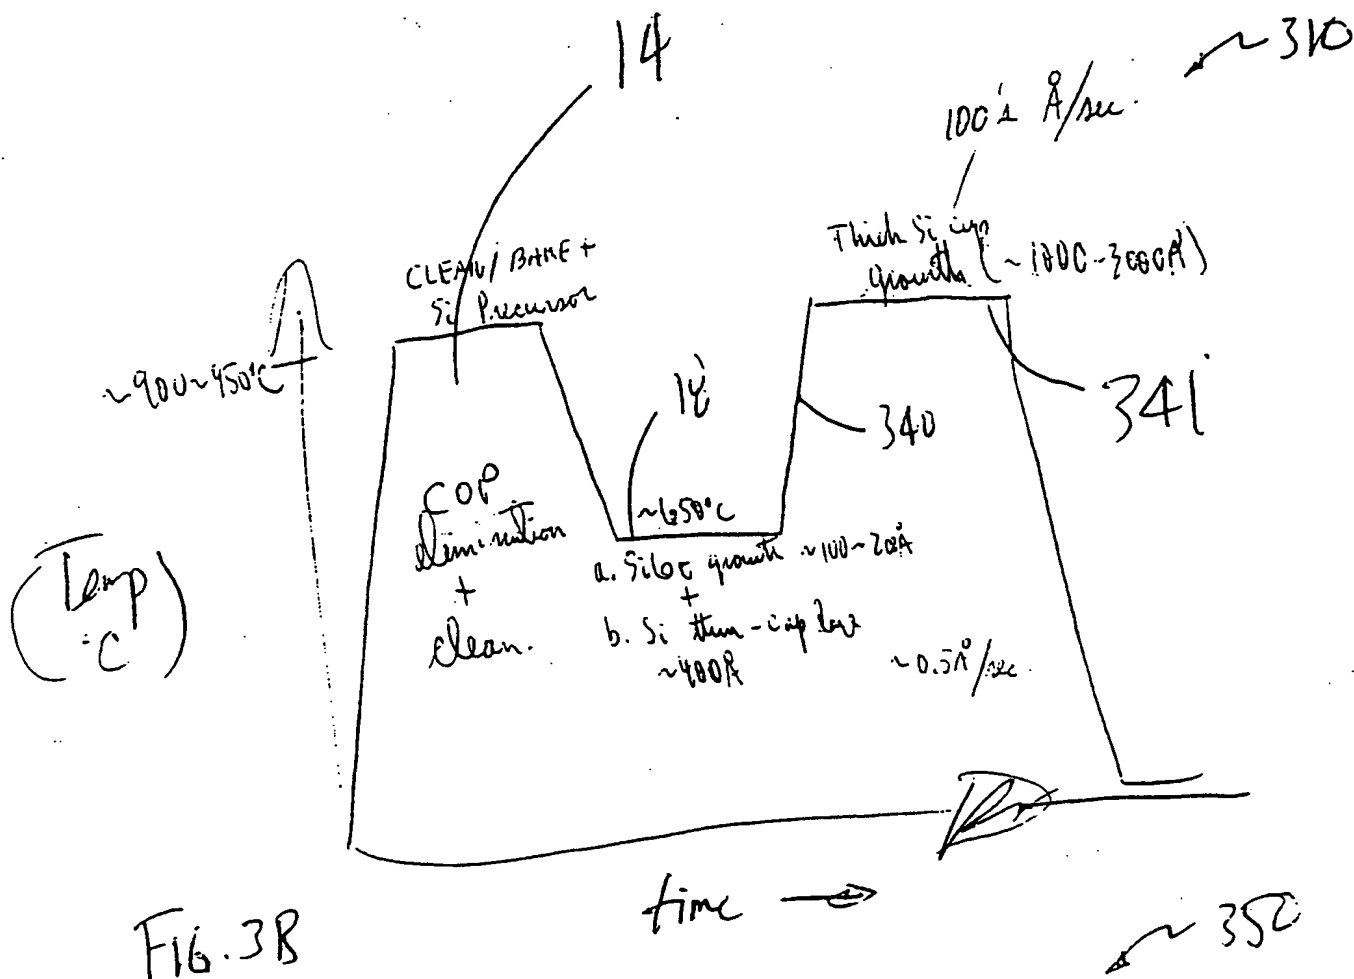 14
~ 310
100's Å/sec.
CLEAN/BAKE +
Si Precursor
Thick Si cap
growth (~1000-3000Å)
~900~950°C
18
340
341
COP
elimination
+
clean.
~650°C
a. SiGe growth ~100~200Å
+
b. Si thin-cap layer
~400Å
~0.5Å/sec.
(Temp
°C)
time →
FIG. 3B
~ 350